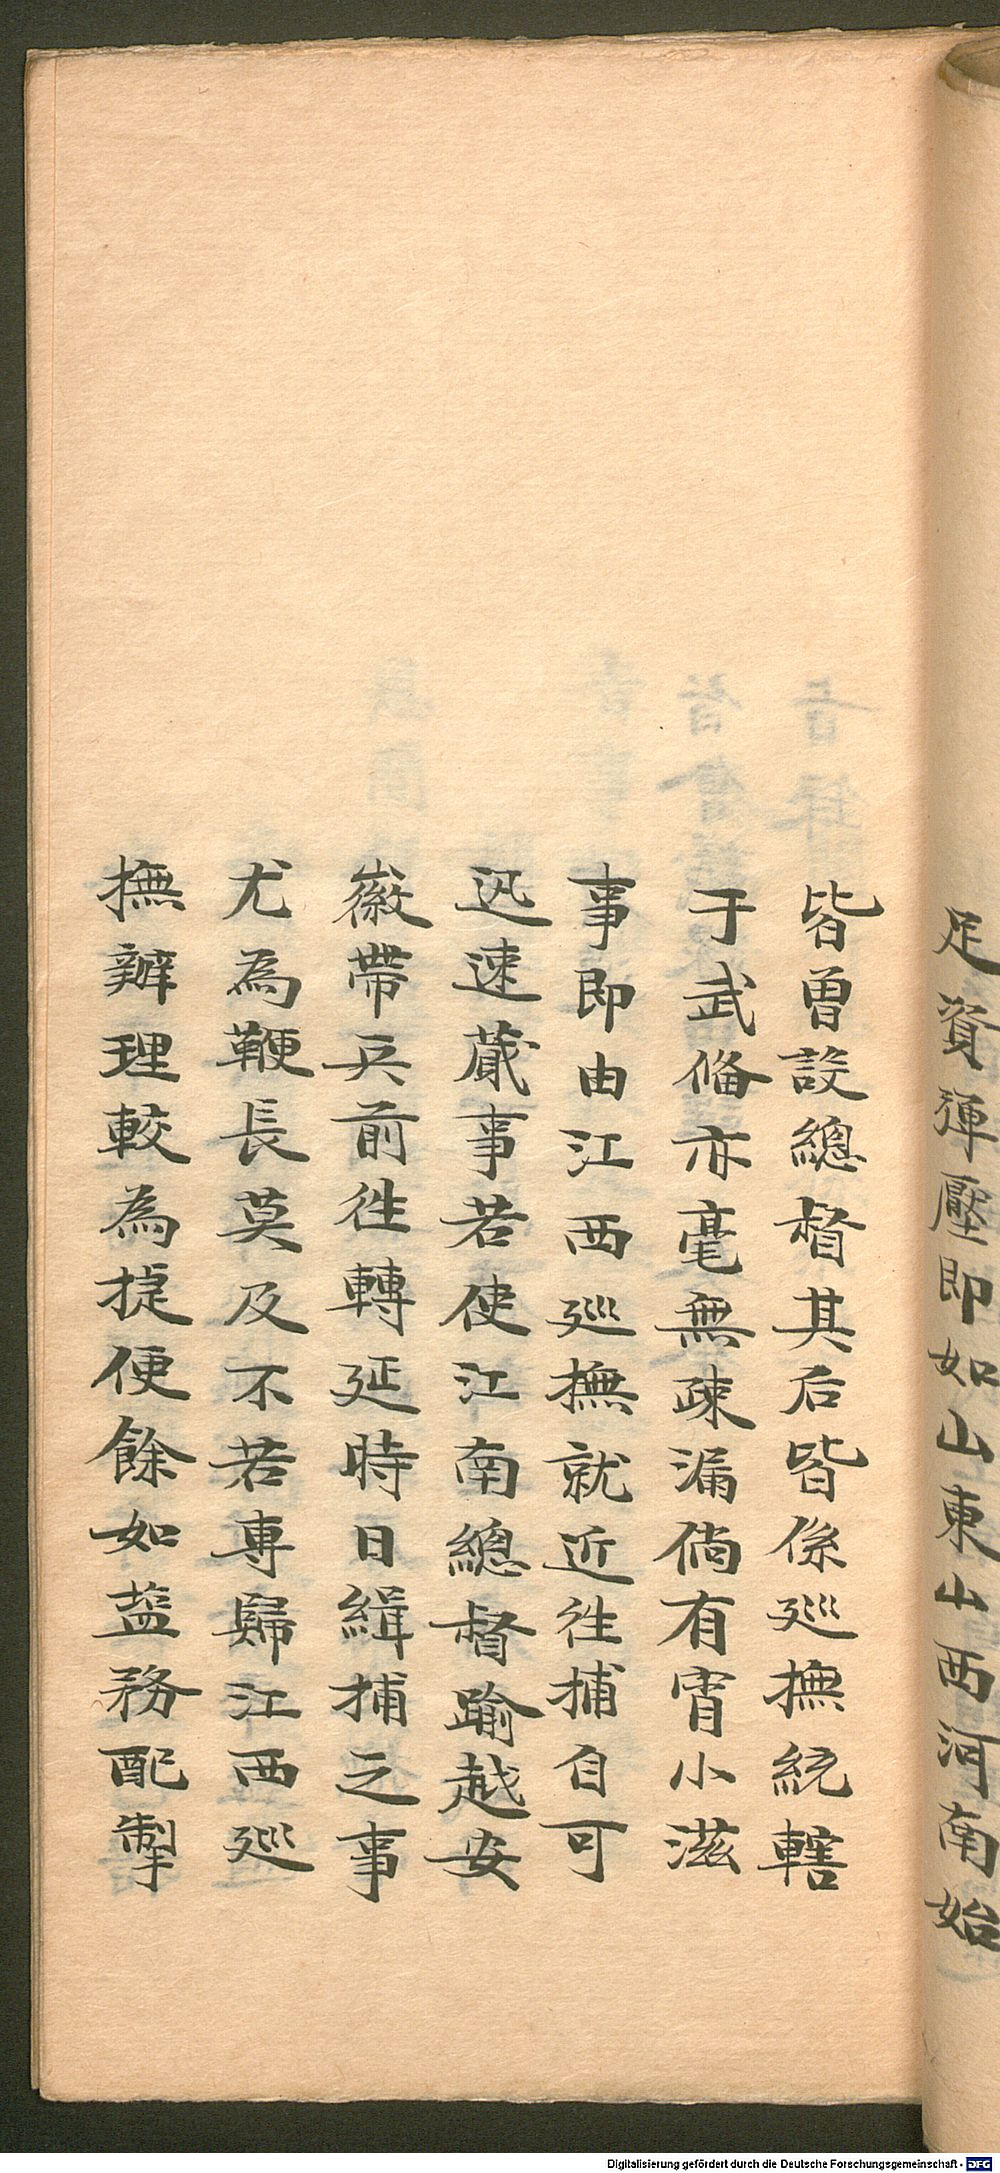 足資弹壓即如山東山西河南始
皆曽設總督其后皆係廵撫統轄
于武偹亦毫無疎漏倘有宵小滋
事即由江西廵撫就近徃捕自可
迅速蕆事若使江南總督踰越安
徽帶兵前徃轉延時日緝捕之事
尤為鞭長莫及不若專歸江西廵
撫辦理較為捷便餘如盐務配掣
Digitalisierung gefördert durch die Deutsche Forschungsgemeinschaft - DFG